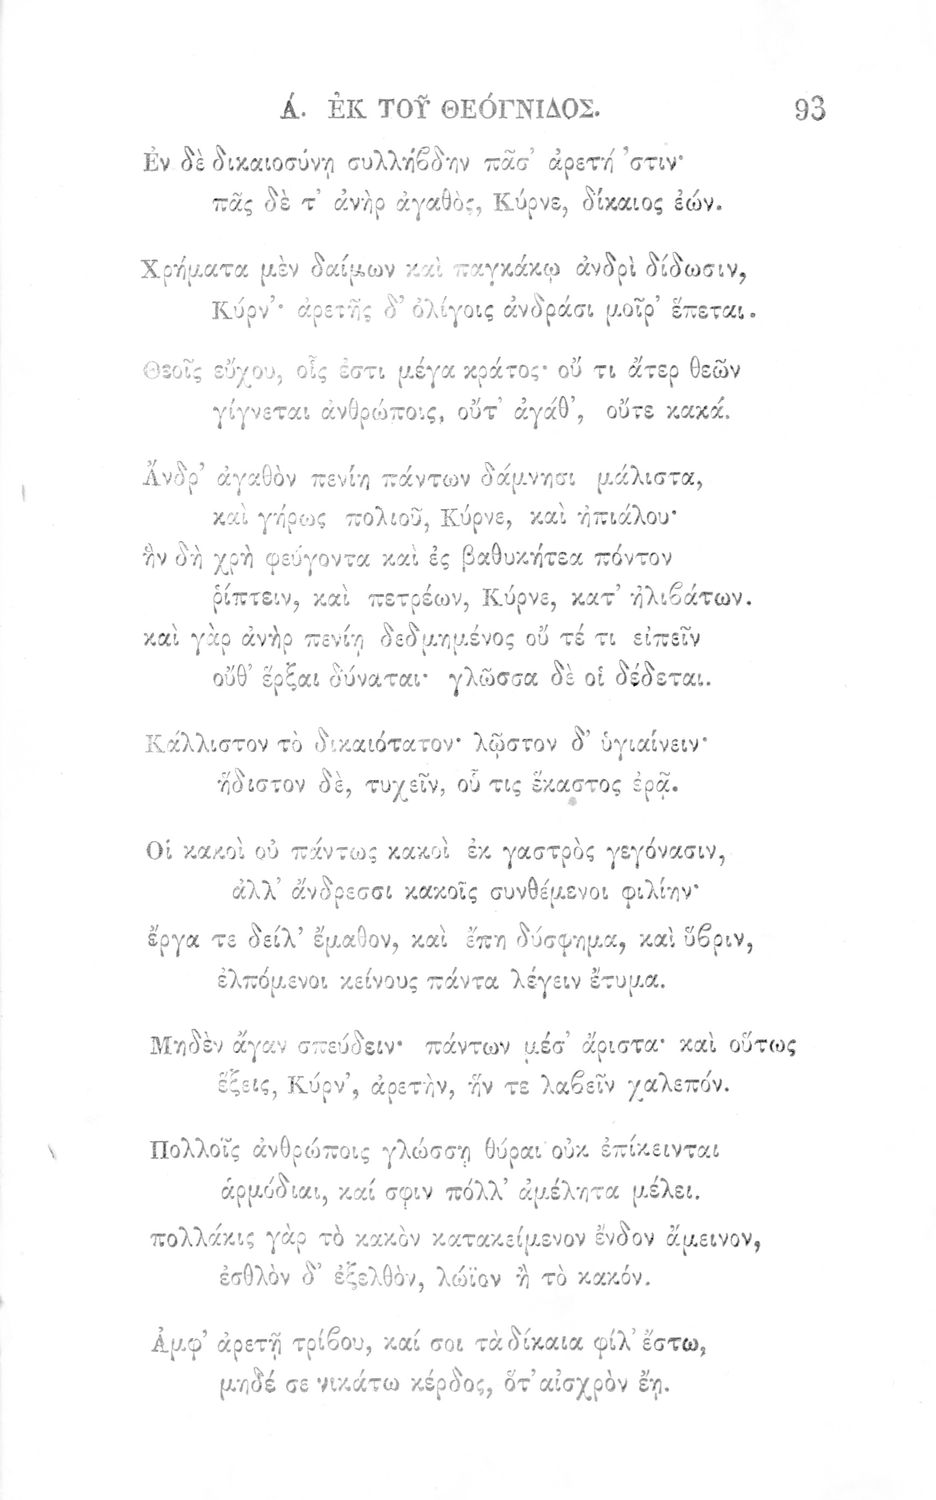 Ά. ἘΚ ΤΟΥ͂ ΘΕΌΓΝΙΔΟΣ. 93
Ἐν δὲ δικαιοσύνῃ συλλήβδην πᾶσ’ ἀρετή ’στιν·
πᾶς δὲ τ’ ἀνὴρ ἀγαθὸς, Κύρνε, δίκαιος ἐών.
Χρήματα μὲν δαίμων καὶ παγκάκῳ ἀνδρὶ δίδωσιν,
Κύρν’· ἀρετῆς δ’ ὀλίγοις ἀνδράσι μοῖρ’ ἕπεται.
Θεοῖς εὔχου, οἷς ἐστι μέγα κράτος· οὔ τι ἄτερ θεῶν
γίγνεται ἀνθρώποις, οὔτ’ ἀγάθ’, οὔτε κακά.
Ἄνδρ’ ἀγαθὸν πενίη πάντων δάμνησι μάλιστα,
καὶ γήρως πολιοῦ, Κύρνε, καὶ ἠπιάλου·
ἣν δὴ χρὴ φεύγοντα καὶ ἐς βαθυκήτεα πόντον
ῥίπτειν, καὶ πετρέων, Κύρνε, κατ’ ἠλιβάτων.
καὶ γὰρ ἀνὴρ πενίῃ δεδμημένος οὔ τέ τι εἰπεῖν
οὔθ’ ἕρξαι δύναται· γλῶσσα δὲ οἱ δέδεται.
Κάλλιστον τὸ δικαιότατον· λῷστον δ’ ὑγιαίνειν·
ἥδιστον δὲ, τυχεῖν, οὗ τις ἕκαστος ἐρᾷ.
Οἱ κακοὶ οὐ πάντως κακοὶ ἐκ γαστρὸς γεγόνασιν,
ἀλλ’ ἄνδρεσσι κακοῖς συνθέμενοι φιλίην·
ἔργα τε δείλ’ ἔμαθον, καὶ ἔπη δύσφημα, καὶ ὕβριν,
ἐλπόμενοι κείνους πάντα λέγειν ἔτυμα.
Μηδὲν ἄγαν σπεύδειν· πάντων μέσ’ ἄριστα· καὶ οὕτως
ἕξεις, Κύρν’, ἀρετὴν, ἥν τε λαβεῖν χαλεπόν.
Πολλοῖς ἀνθρώποις γλώσσῃ θύραι οὐκ ἐπίκεινται
ἁρμόδιαι, καί σφιν πόλλ’ ἀμέλητα μέλει.
πολλάκις γὰρ τὸ κακὸν κατακείμενον ἔνδον ἄμεινον,
ἐσθλὸν δ’ ἐξελθὸν, λώϊον ἢ τὸ κακόν.
Ἀμφ’ ἀρετῇ τρίβου, καί σοι τὰ δίκαια φίλ’ ἔστω,
μηδέ σε νικάτω κέρδος, ὅτ’ αἰσχρὸν ἔῃ.